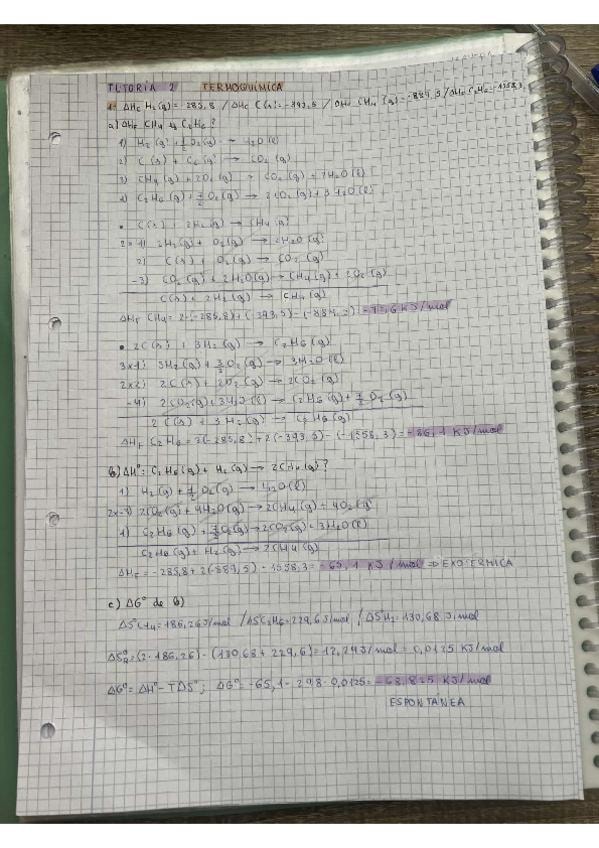 TUTORIA 2 TERMOQUÍMICA
1- ΔHc H₂(g)=-285,8 / ΔHc C(s)=-393,5 / ΔHc CH₄(g)=-889,5 / ΔHc C₂H₆=-1558,3
a) ΔHf CH₄ y C₂H₆?
1) H₂(g)+½O₂(g) → H₂O(l)
2) C(s) + O₂(g) → CO₂(g)
3) CH₄(g)+2O₂(g) → CO₂(g)+2H₂O(l)
4) C₂H₆(g)+7/2 O₂(g) → 2CO₂(g)+3H₂O(l)
• C(s)+2H₂(g) → CH₄(g)
2×1) 2H₂(g)+O₂(g) → 2H₂O(g)
2) C(s)+O₂(g) → CO₂(g)
-3) CO₂(g)+2H₂O(g) → CH₄(g)+2O₂(g)
C(s)+2H₂(g) → CH₄(g)
ΔHf CH₄=2·(-285,8)+(-393,5)-(-889,5)=-75,6 KJ/mol
• 2C(s)+3H₂(g) → C₂H₆(g)
3×1) 3H₂(g)+3/2 O₂(g) → 3H₂O(l)
2×2) 2C(s)+2O₂(g) → 2CO₂(g)
-4) 2CO₂(g)+3H₂O(l) → C₂H₆(g)+7/2 O₂(g)
2C(s)+3H₂(g) → C₂H₆(g)
ΔHf C₂H₆=3(-285,8)+2(-393,5)-(-1558,3)=-86,1 KJ/mol
b) ΔH°: C₂H₆(g)+H₂(g) → 2CH₄(g)?
1) H₂(g)+½O₂(g) → H₂O(l)
2×-3) 2CO₂(g)+4H₂O(g) → 2CH₄(g)+4O₂(g)
4) C₂H₆(g)+7/2 O₂(g) → 2CO₂(g)+3H₂O(l)
C₂H₆(g)+H₂(g) → 2CH₄(g)
ΔHr=-285,8+2(-889,5)-1558,3=-65,1 KJ/mol ⇒ EXOTÉRMICA
c) ΔG° de b)
ΔS°CH₄=186,26J/mol / ΔSC₂H₆=229,6J/mol / ΔSH₂=130,68 J/mol
ΔS°R=(2·186,26)-(130,68+229,6)=12,24J/mol=0,0125 KJ/mol
ΔG°=ΔH°-TΔS°; ΔG°=-65,1-298·0,0125=-68,825 KJ/mol
ESPONTÁNEA